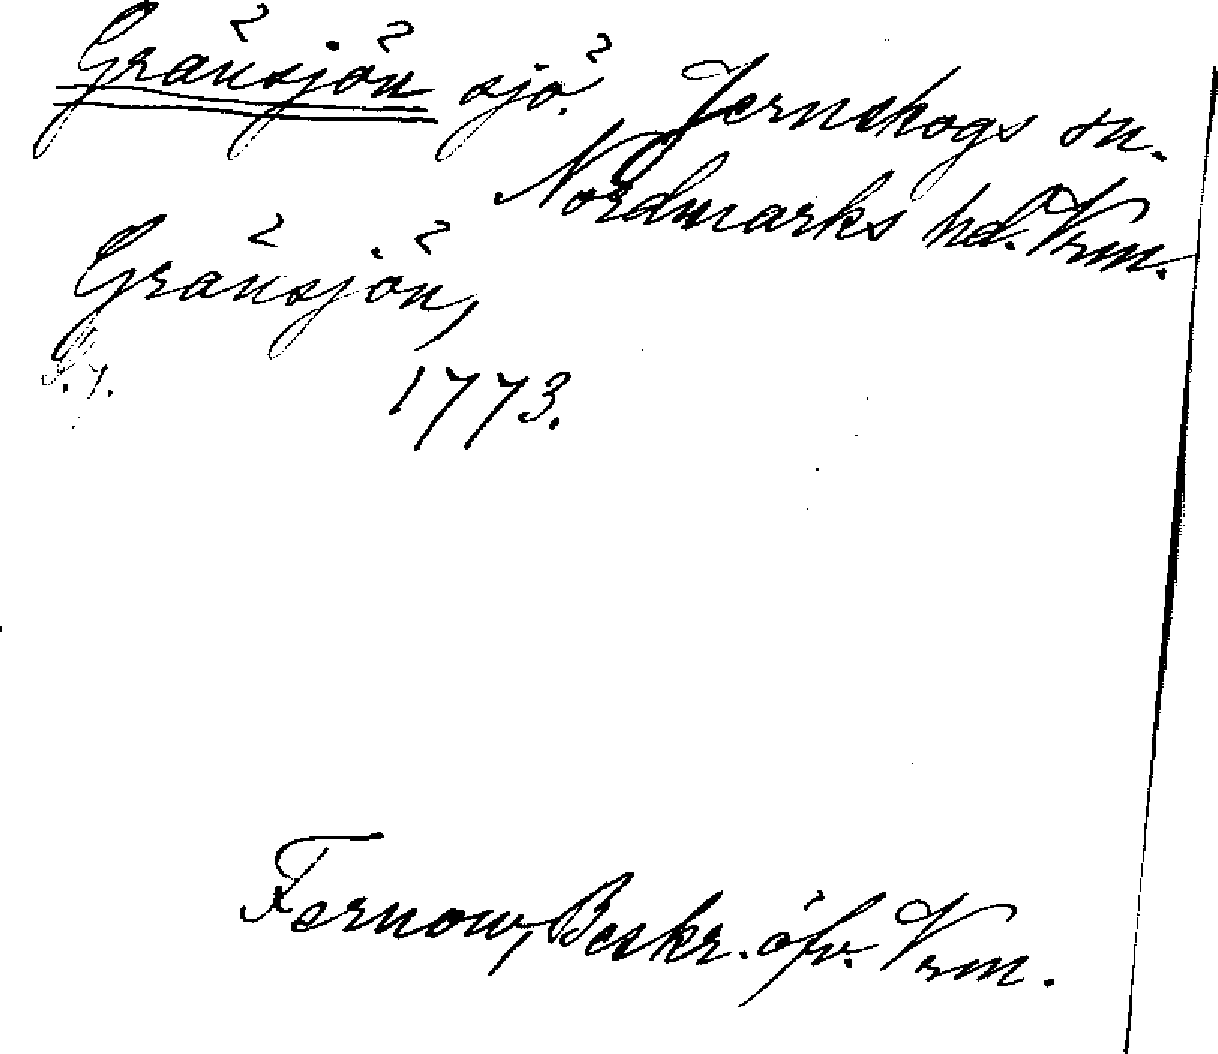 Gränsjön sjö. Jernskogs sn.
Nordmarks hd. Vrm.
Gränsjön,
1773.
Fernow, Beskr. öfv. Vrm.